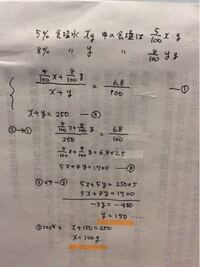 5% 食塩水 xg 中の食塩は 5/100 x g
8% 〃 y 〃 8/100 y g
(5/100 x + 8/100 y) / (x+y) = 6.8/100 ―①
x+y=250 ―②
②→① (5/100 x + 8/100 y) / 250 = 6.8/100
5/100 x + 8/100 y = 6.8×2.5
5x+8y=1700 ―③
②×5-③ 5x+5y=250×5
5x+8y=1700
-3y=-450
y=150
x+150=250
x=100g